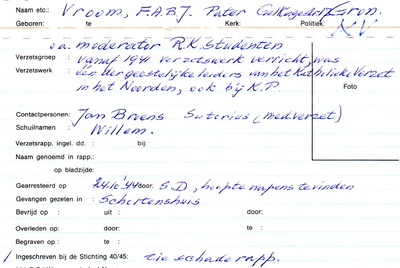 Naam etc.: Vroom, F.A.B.J. Pater Gron.
Geboren: te Kerk: Politiek:
K V
o.a. moderator R.K. Studenten
Verzetsgroep : vanaf 1941 verzetswerk verricht, was
Verzetswerk : één der geestelijke leiders van het Katholieke Verzet
in het Noorden, ook bij K.P.
Foto
Contactpersonen: Jan Broens Sutorius (med. verzet)
Schuilnamen : Willem.
Verzetsrapp. ingel. dd. : bij:
Naam genoemd in rapp.:
op bladzijde:
Gearresteerd op : 24.10.'44 door: S D, hoopte wapens te vinden
Gevangen gezeten in : Scholtenshuis
Bevrijd op : uit : door:
Overleden op: door: te :
Begraven op : te :
Ingeschreven bij de Stichting 40/45: zie schaderapp.